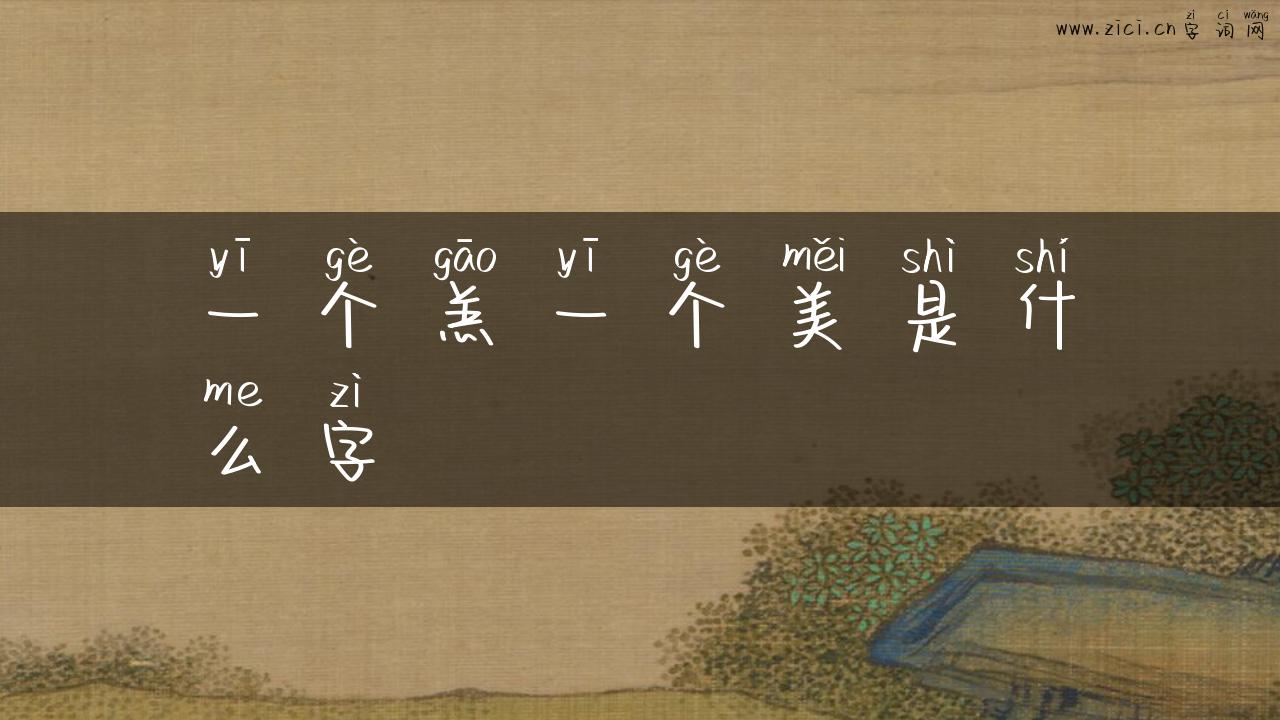 zì cí wǎng
www.zici.cn字词网
yī gè gāo yī gè měi shì shí
一个羔一个美是什
me zì
么字